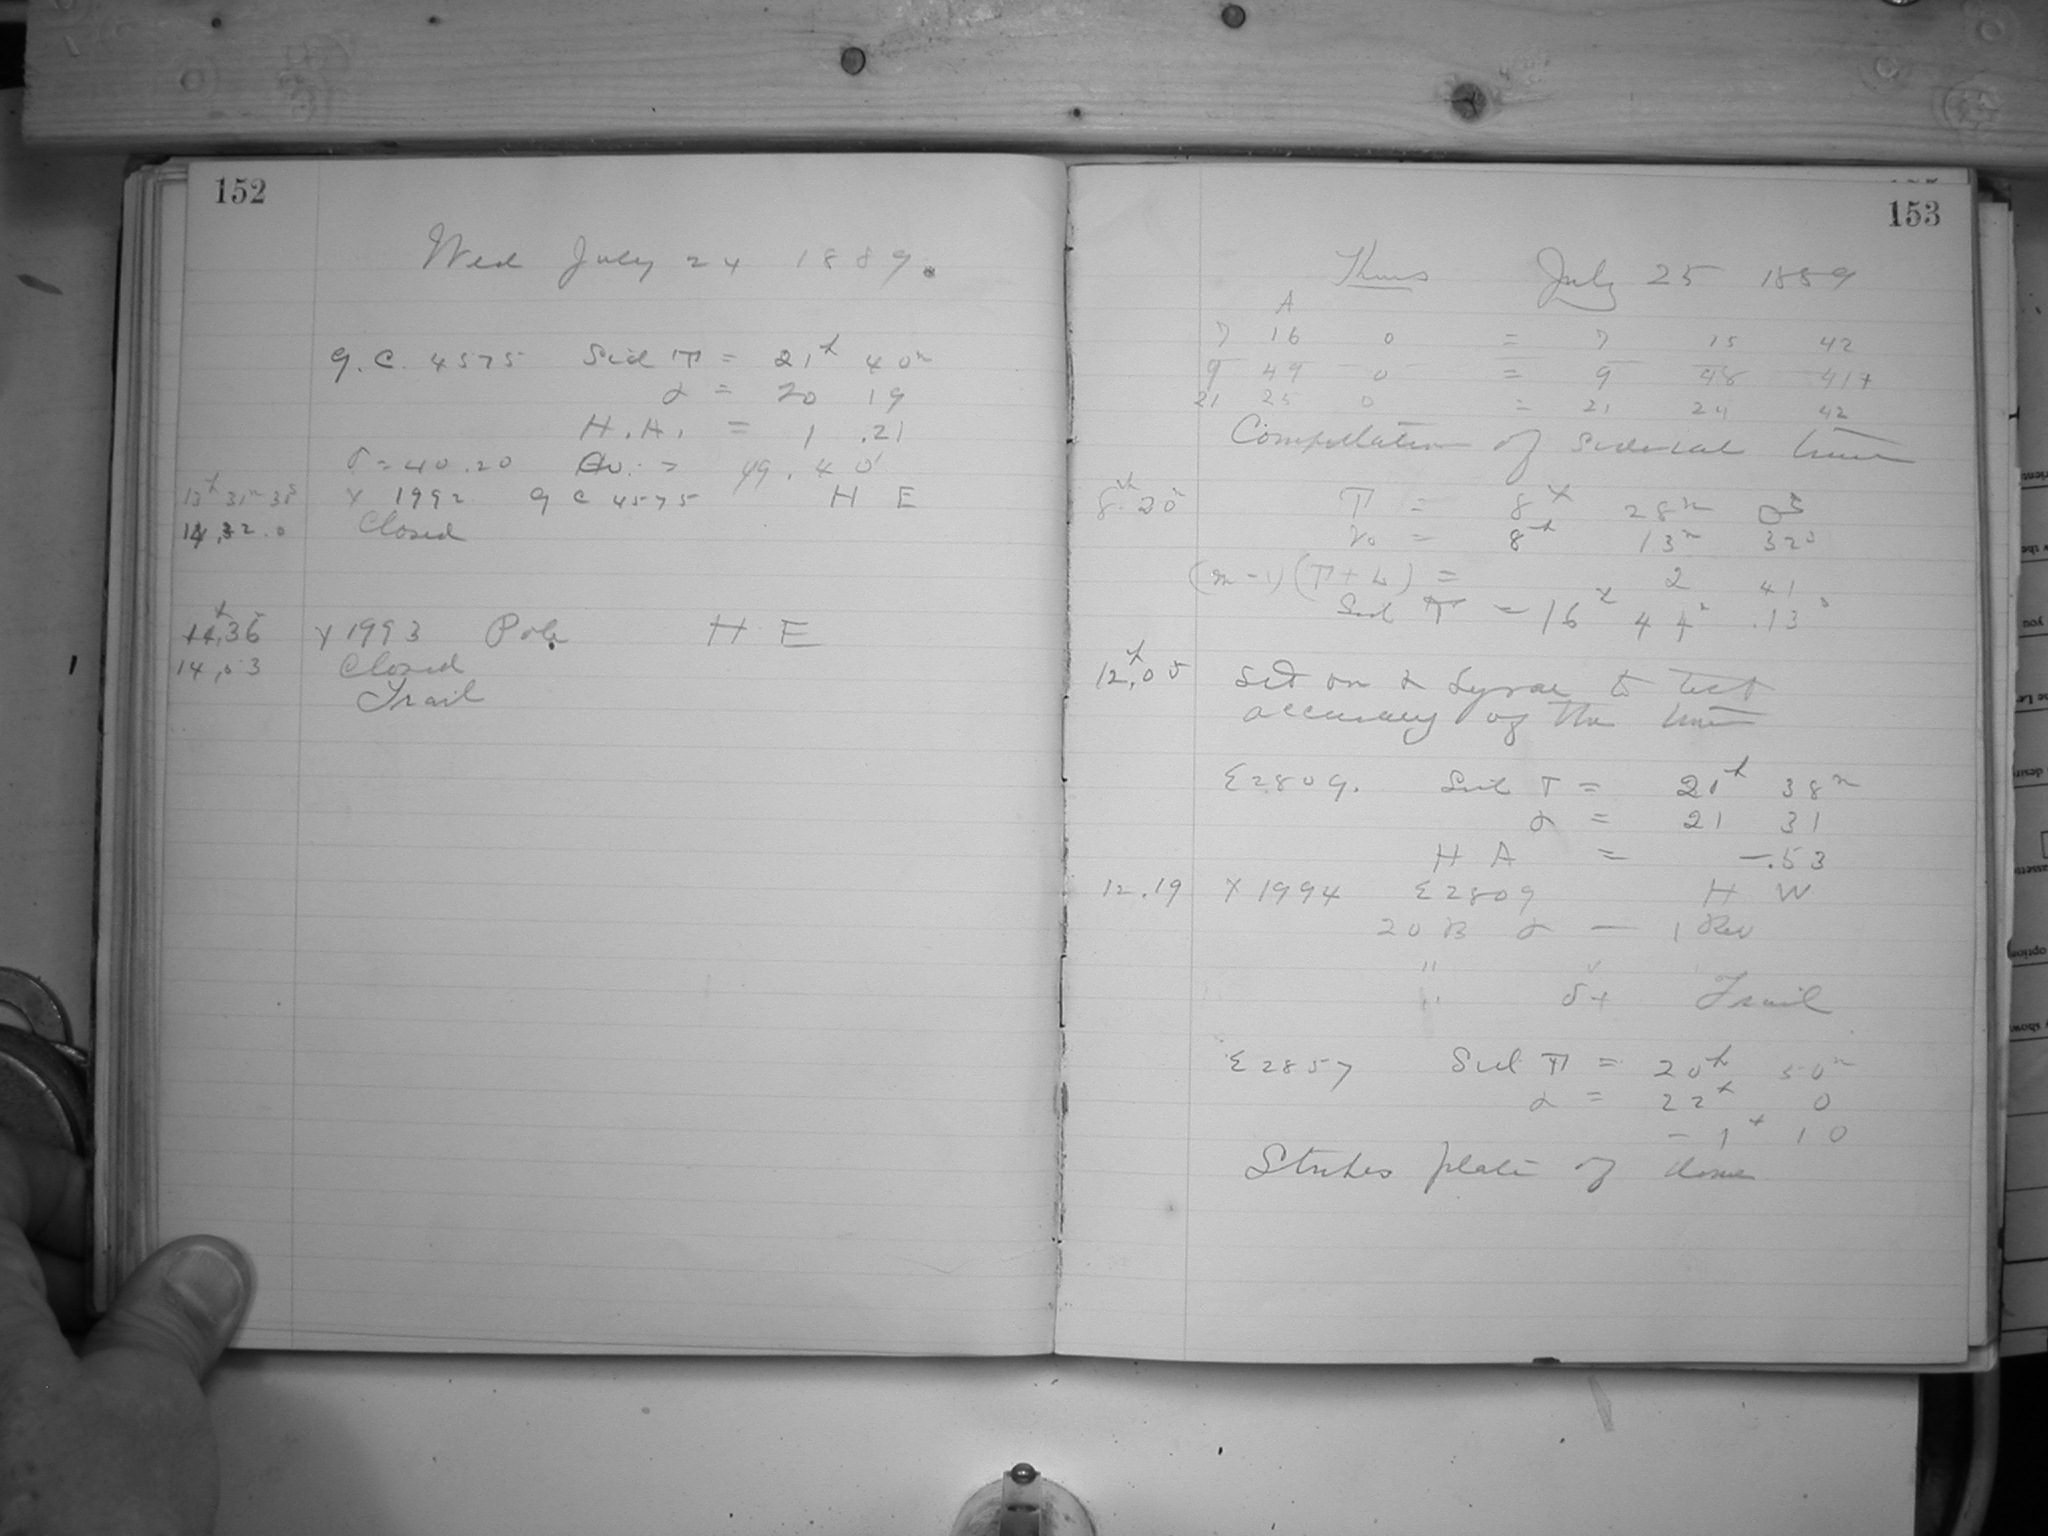 152
Wed July 24 1889.
G.C. 4575 Sid T = 21h 40m
α = 20 19
H.A. = 1 .21
δ = 40.20 = 49.40'
13h 31m 38s X 1992 G C 4575 H E
14,32.0 Closed
14h,36 X 1993 Pole H E
14,53 Closed
Trail
153
Thurs July 25 1889
A
7 16 0 = 7 15 42
9 49 0 = 9 48 41+
21 25 0 = 21 24 42
Compillation of sidereal time
8h.20m T = 8h 28m 0s
V0 = 8h 13m 32s
(m-1)(T+L) = 2 41
Sid T = 16h 44m .13s
12h.05 Set on α Lyrae to test
accuracy of the time
Σ2809. Sid T = 21h 38m
α = 21 31
H A = -.53
12.19 X 1994 Σ2809 H W
20 B α — 1 Rev
" "
" δ+ Trail
Σ2857 Sid T = 20h 50m
α = 22h 0
- 1h 10
Strikes plate of dome